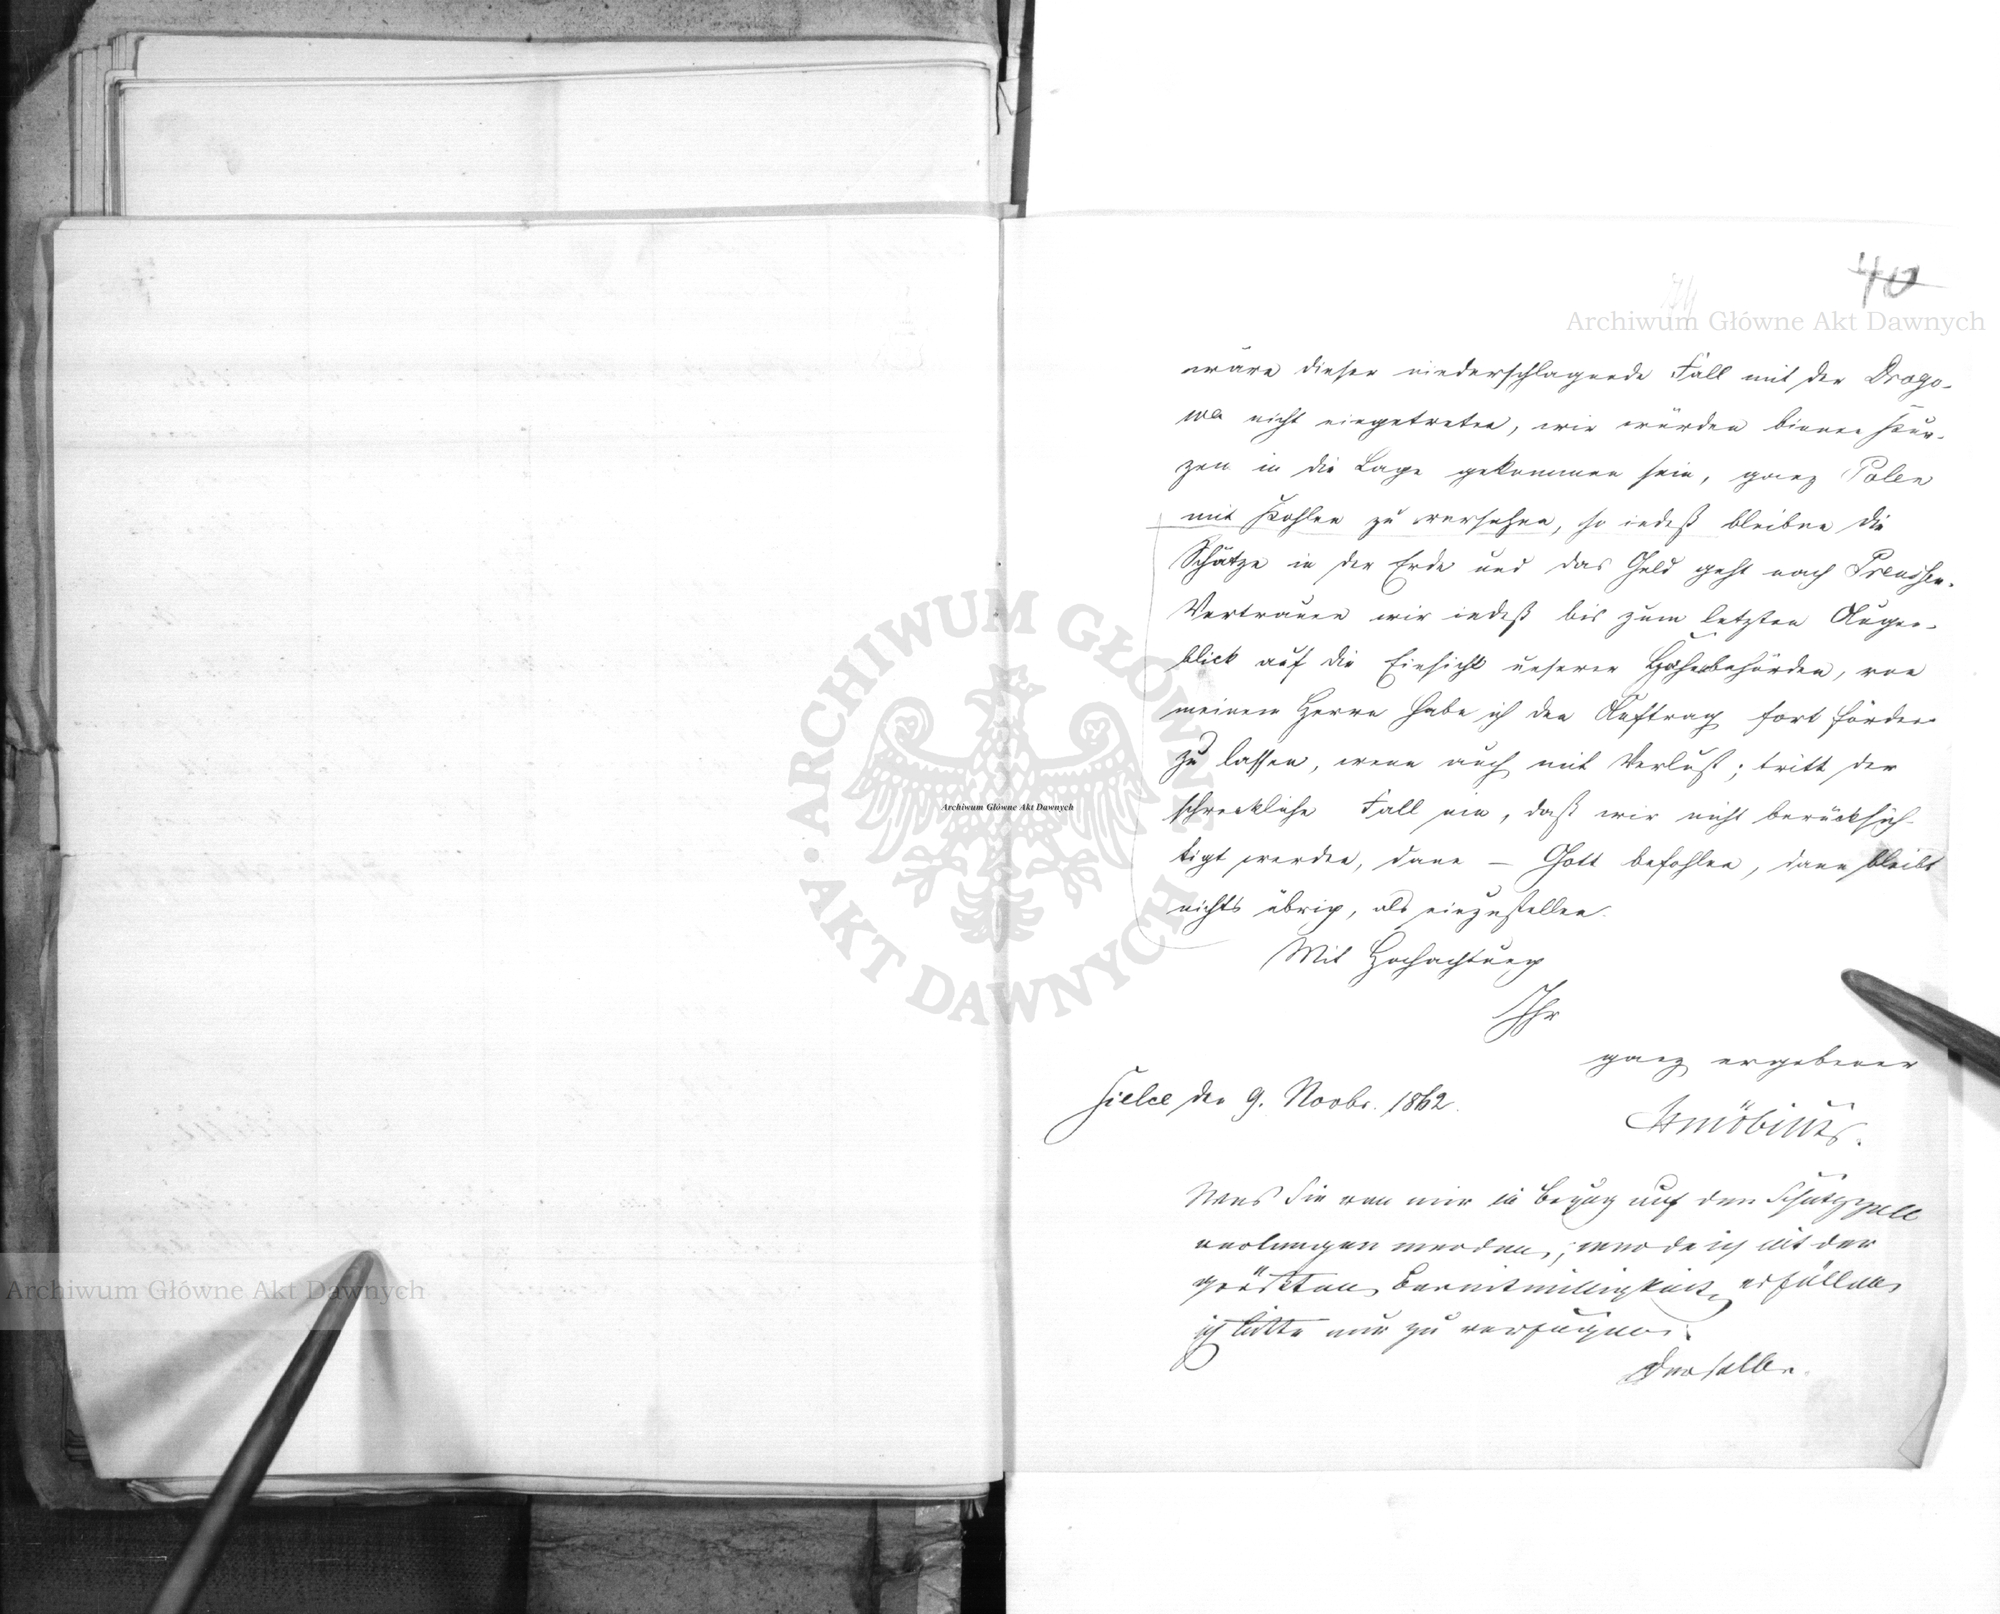 40
Archiwum Główne Akt Dawnych
wäre dieser niederschlagende Fall mit der Drogo-
wa nicht eingetreten, wir würden binnen Kur-
zen in die Lage gekommen sein, ganz Polen
mit Kohlen zu versehen, so indeß bleiben die
Schätze in der Erde und das Geld geht nach Preußen.
Vertrauen wir indeß bis zum letzten Augen-
blick auf die Einsicht unserer Höhenbehörden, von
meinem Herrn habe ich den Auftrag fort fördern
zu lassen, wenn auch mit Verlust; tritt der
schreckliche Fall ein, daß wir nicht berücksich-
tigt werden, dann — Gott befohlen, dann bleibt
nichts übrig, als einzustellen.
Mit Hochachtung
Ihr
ganz ergebener
Sielce den 9. Novbr. 1862.
Möbius.
Was Sie von mir in Bezug auf den Schutzzoll
verlangen werden, werde ich mit der
größten Bereitwilligkeit erfüllen,
ich bitte nur zu verfügen.
Derselbe.
ARCHIWUM GŁÓWNE AKT DAWNYCH
Archiwum Główne Akt Dawnych
Archiwum Główne Akt Dawnych